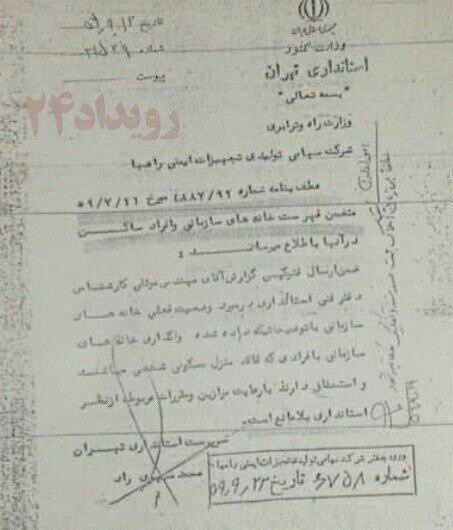 جمهوری اسلامی ایران
وزارت کشور
استانداری تهران
"بسمه تعالی"
تاریخ
شماره
پیوست
رویداد۲۴
وزارت راه و ترابری
شرکت سهامی تولیدی تجهیزات ایمنی راهها
عطف بنامه شماره ۲۸۸۷/۹۲ مورخ ۵۹/۷/۲۶
متضمن فهرست خانه های سازمانی وافراد ساکن
درآنها باطلاع میرساند :
ضمن ارسال فتوکپی گزارش آقای مهندس کارشناس
دفتر فنی استانداری درمورد وضعیت فعلی خانه های
سازمانی باتوضیحاتیکه داده شده واگذاری خانه های
سازمانی بافرادی که فاقد منزل مسکونی شخصی میباشند
و استحقاق دارند بارعایت موازین ومقررات مربوطه ازنظر
استانداری بلامانع است.
سرپرست استانداری تهران
محمد راد
ورود به دفتر شرکت سهامی تولید تجهیزات ایمنی راهها
شماره ۶۷۵۸ تاریخ ۵۹،۹،۲۳